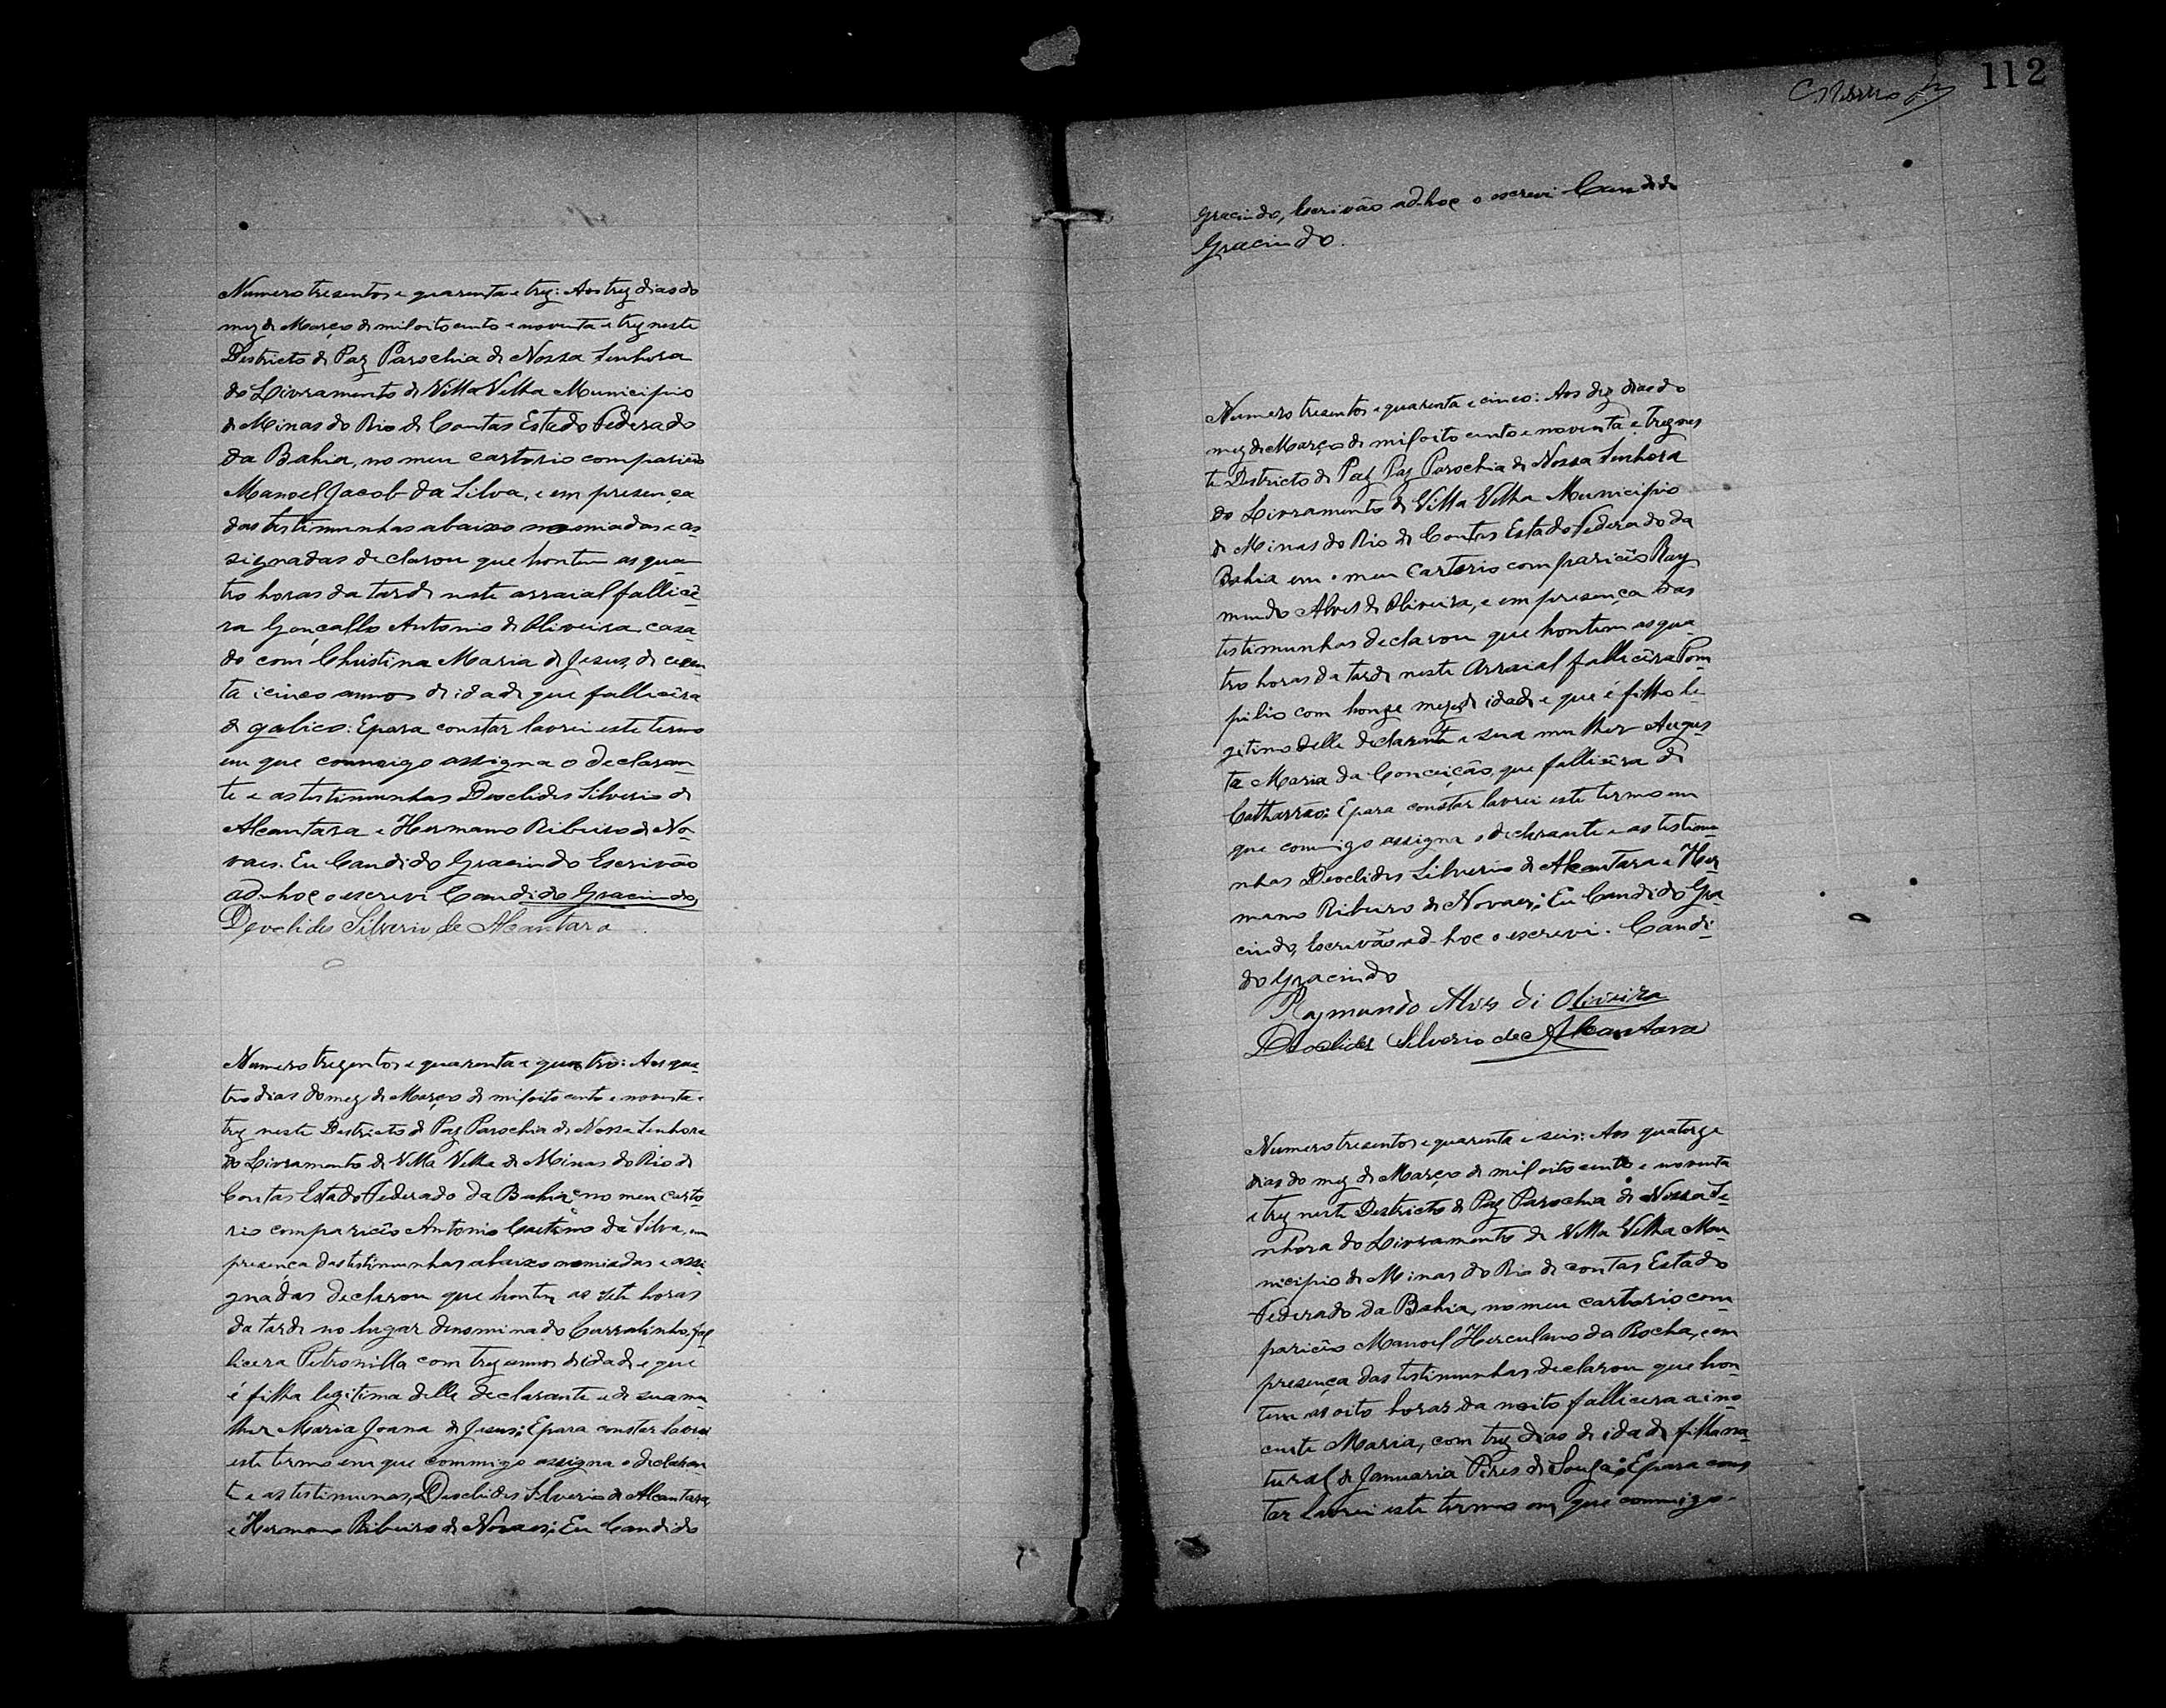 Numero tresentos e quarenta e trez: Aos trez dias do
mez de Março de mil oito cento e noventa e trez neste
Districto de Paz Parochia de Nossa Senhora
do Livramento de Villa Velha Municipio
de Minas do Rio de Contas Estado Federado
da Bahia, no meu cartorio compariceo
Manoel Jacob da Silva, e em presença
das testimunhas abaixo nomadas e as
signadas declarou que hontem as qua
tro horas da tarde neste arraial fallicê
ra Gonçallo Antonio de Oliveira casa
do com Christina Maria de Jesus, de
ta e cinco annos de idade que fallicêra
de galico: E para constar lavrei este termo
em que commigo assigna o declaran
te e as testimunhas Deoclides Silverio de
Alcantara e Hermano Ribeiro de No
vaes. Eu Candido Gracindo Escrivão
ad-hoc o escrevi Candido Gracindo,
Deoclides Silverio de Alcantara
Numero trezentos e quarenta e quatro: Aos qua
tro dias do mez de Março de mil oito cento e noventa e
trez neste Districto de Paz Parochia de Nossa Senhora
do Livramento de Villa Velha de Minas do Rio de
Contas Estado Federado da Bahia, e no meu carto
rio compariceo Antonio Caetano da Silva, em
presença das testimunhas abaixo nomiadas e assi
gnadas declarou que hontem as sete horas
da tarde no lugar denominado Curralinho, fal
licera Petronilla com trez annos de idade e que
é filha legitima delle declarante e de sua mu
lher Maria Joana de Jesus; E para constar lavrei
este termo em que commigo assigna o declaran
te e as testimunas, Deoclides Silverio de Alcantara,
e Hermano Ribeiro de Novaes; Eu Candido
112
Gracindo, Escrivão ad-hoc o escrevi Candido
Gracindo.
Numero tresentos e quarenta e cinco: Aos dez dias do
mez de Março de mil oito cento e noventa e trez nes
te Districto de Paz Paz Parochia de Nossa Senhora
do Livramento de Villa Velha Municipio
de Minas do Rio de Contas Estado Federado da
Bahia em o meu Cartorio compariceo Ray
mundo Alves de Oliveira, e em presença das
testimunhas declarou que hontem as qua
tro horas da tarde neste Arraial fallicêra Pom
pilio com honze mezes de idade e que é filho le
gitimo delle declarante e sua mulher Augus
ta Maria da Conceição, que fallicêra de
Catharrão: E para constar lavrei este termo em
que commigo assigna o declarante e as testimu
nhas Deoclides Silverio de Alcantara e Her
mano Ribeiro de Novaes; Eu Candido Gra
cindo, Escrivão ad-hoc o escrevi. Candi
do Gracindo
Raymundo Alves di Oliveira
Deoclides Silverio de Alcantara
Numero tresentos e quarenta e seis: Aos quatorze
dias do mez de Março de mil oito cento e noventa
e trez neste Districto de Paz Parochia de Nossa Se
nhora do Livramento de Villa Velha Mu
nicipio de Minas do Rio de contas Estado
Federado da Bahia, no meu cartorio com
pariceo Manoel Herculano da Rocha, e em
presença das testimunhas declarou que hon
tem as oito horas da noite fallicera a ino
cente Maria, com trez dias de idade filha na
tural de Januaria Pires de Souza; E para cons
tar lavrei este termo em que commigo